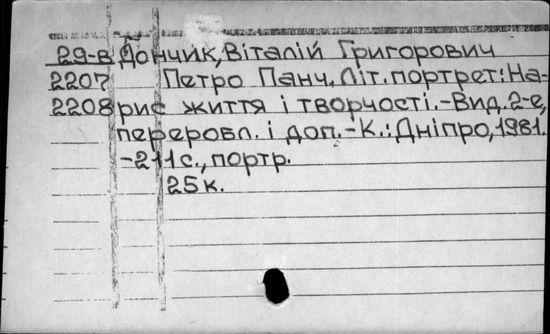 29-в Дончик, Віталій Григорович
2207 Петро Панч. Літ. портрет: На-
2208 рис життя і творчості.-Вид. 2-е,
переробл. і доп.-К.: Дніпро, 1981.
-211 с., портр.
25 к.